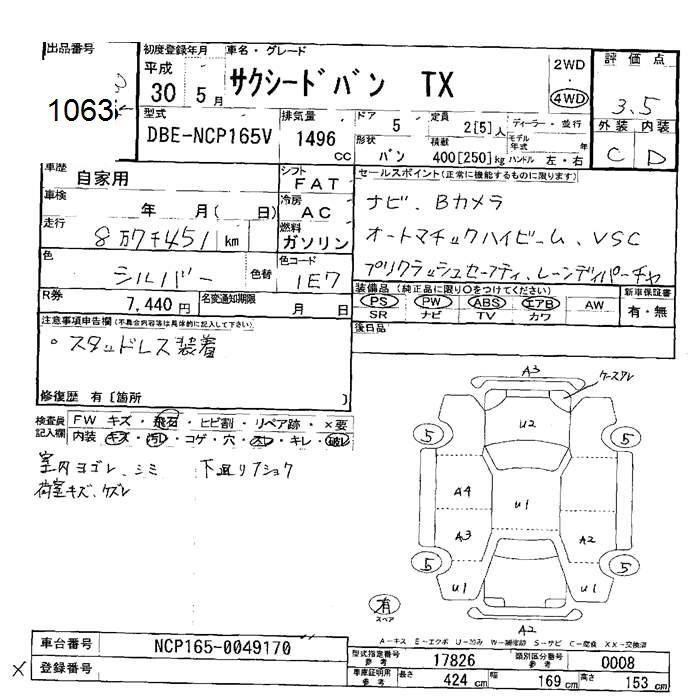 出品番号
1063
初度登録年月 車名・グレード
平成 30 年 5 月
サクシードバン TX
2WD
4WD
評価点
3.5
外装 内装
C D
型式
DBE-NCP165V
排気量
1496 cc
ドア 5
形状 バン
定員 2[5]人
積載 400[250]kg
ディーラー・並行
モデル年式 年
ハンドル 左・右
車歴
自家用
車検
年 月( 日)
走行
8万7千451 km
色
シルバー
色替
シフト
FAT
冷房
AC
燃料
ガソリン
色コード
1E7
セールスポイント(正常に機能するものに限ります)
ナビ、Bカメラ
オートマチックハイビーム、VSC
プリクラッシュセーフティ、レーンディパーチャ
R券
7,440円
名変通知期限
月 日
装備品(純正品に限り○をつけてください)
PS PW ABS エアB AW
SR ナビ TV カワ
新車保証書
有・無
後日品
注意事項申告欄(不具合内容等は具体的に記入して下さい)
。スタッドレス装着
修復歴 有[箇所 ]
検査員記入欄
FW キズ・飛石・ヒビ割・リペア跡・×要
内装 キズ・汚レ・コゲ・穴・スレ・キレ・破レ
室内ヨゴレ、シミ 下廻リフショク
荷室キズ、ケズレ
A3
U2
5
5
A4
U1
A3
A2
5
5
U1
U1
A2
有
スペア
A-キズ E-エクボ U-凹み W-補修跡 S-サビ C-腐食 XX-交換済
車台番号 NCP165-0049170
登録番号
型式指定番号 参考 17826
類別区分番号 参考 0008
車庫証明用 参考 長さ 424 cm 幅 169 cm 高さ 153 cm